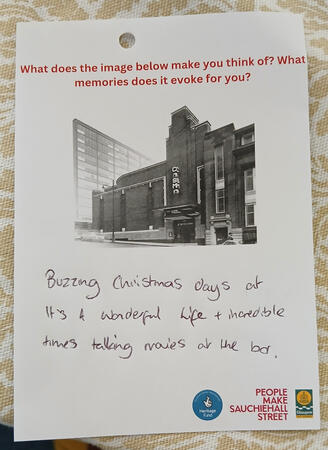 What does the image below make you think of? What
memories does it evoke for you?
Buzzing Christmas days at
It's A wonderful Life + incredible
times talking movies at the bar.
Heritage
Fund
PEOPLE
MAKE
SAUCHIEHALL
STREET